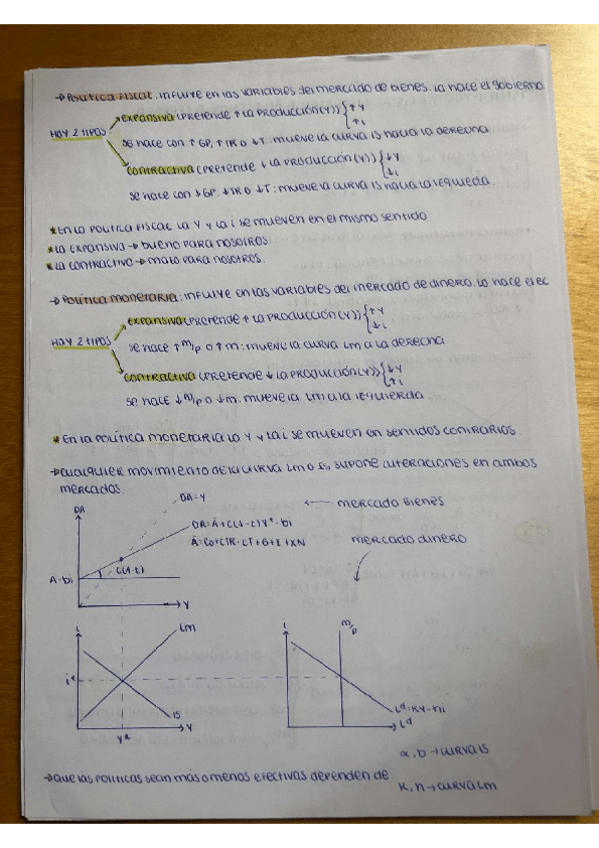 → Política Fiscal: influye en las variables del mercado de bienes. La hace el gobierno.
Hay 2 tipos
Expansiva (pretende ↑ la producción (Y)) { ↑Y ↑i
se hace con ↑ GP, ↑ TR o ↓ T: mueve la curva IS hacia la derecha
Contractiva (pretende ↓ la producción (Y)) { ↓Y ↓i
se hace con ↓ GP, ↓ TR o ↓ T: mueve la curva IS hacia la izquieda.
* En la política fiscal la Y y la i se mueven en el mismo sentido
* La expansiva → bueno para nosotros
* La contractiva → malo para nosotros.
→ Política monetaria: influye en las variables del mercado de dinero. Lo hace el BC
Hay 2 tipos
Expansiva (pretende ↑ la producción (Y)) { ↑Y ↓i
se hace ↑ M/P o ↑ M: mueve la curva LM a la derecha
Contractiva (pretende ↓ la producción (Y)) { ↓Y ↑i
se hace ↓ M/P o ↓ M: mueve la LM a la izquierda
* En la política monetaria la Y y la i se mueven en sentidos contrarios.
→ Cualquier movimiento de la curva LM o IS supone alteraciones en ambos
mercados.
DA
DA=Y
← mercado bienes
DA=Ā+C(1-t)Y*-bi
Ā=C0+CTR-CT+G+I+XN
mercado dinero
C(1-t)
A-bi
Y
i
LM
i
M/P
iᵉ
IS
Yᵉ
Y
Lᵈ=KY-hi
Lᵈ
α, b → curva IS
→ Que las políticas sean más o menos efectivas dependen de:
K, h → curva LM